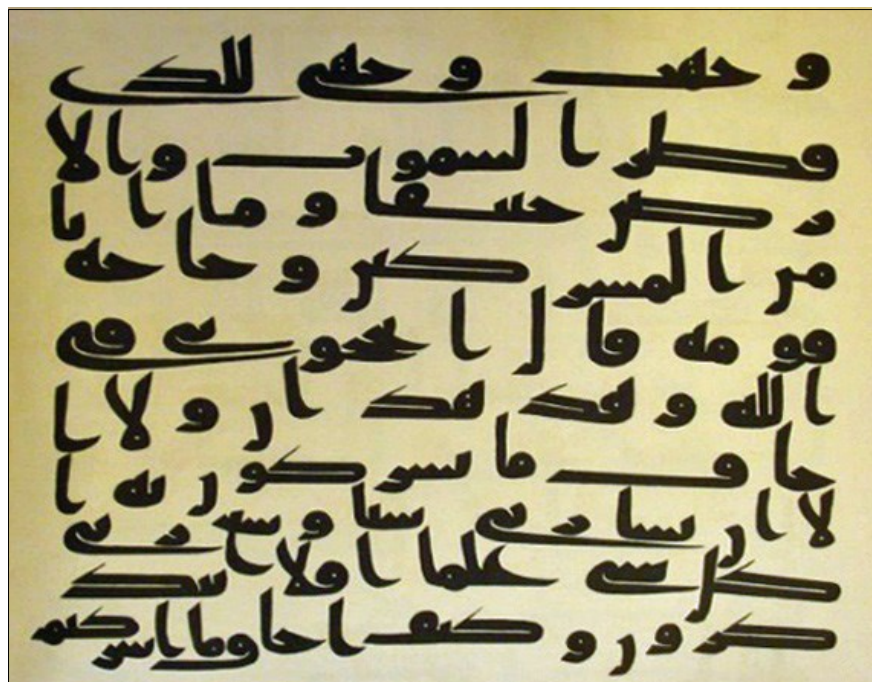 وجهت وجهي للذي
فطر السموت والا
رض حنيفا وما انا
من المشركين وحاجه
قومه قال اتحجوني في
الله وقد هدان ولا ا
خاف ما تشركون به ا
لا ان يشا ربي شيا وسع ربي
كل شي علما افلا تتذ
كرون وكيف اخاف ما اشركتم